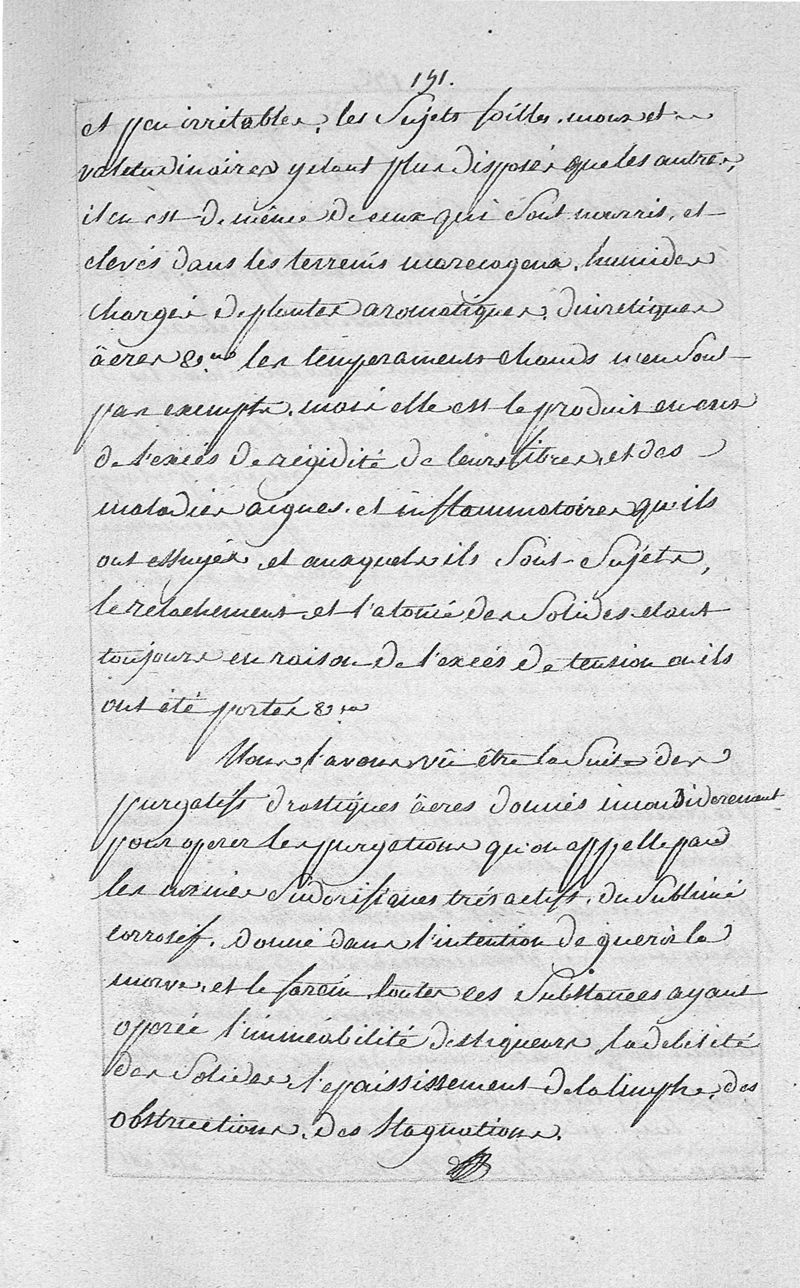 191.
et peu irritables, les Sujets foibles, mous et
valetudinaires y etant plus disposés que les autres,
il en est de même de ceux qui Sont nourris, et
elevés dans les terreins marecageux, humides
chargés de plantes aromatiques, diuretiques
âcres &.ca les temperaments chauds n'en Sont
pas exempts, mais elle est le produit en eux
de l'excés de régidité de leurs fibres, et des
maladies aigues, et inflammatoires qu'ils
ont essuyés, et auxquels ils Sont Sujets,
le relachement et l'atonie des Solides etant
toujours en raison de l'excés de tension ou ils
ont été portés &.ca
Nous l'avons vû être la Suite des
purgatifs drastiques âcres donnés inconsiderement
pour operer les purgations qu'on appelle par
les urines Sudorifiques trés actifs, du Sublimé
corrosif, donné dans l'intention de guerir la
morve, et le farcin, toutes ces Substances ayant
operée l'immeabilité des liqueurs, la debilité
des Solides, l'epaississement de la limphe, des
obstructions, des Stagnations.